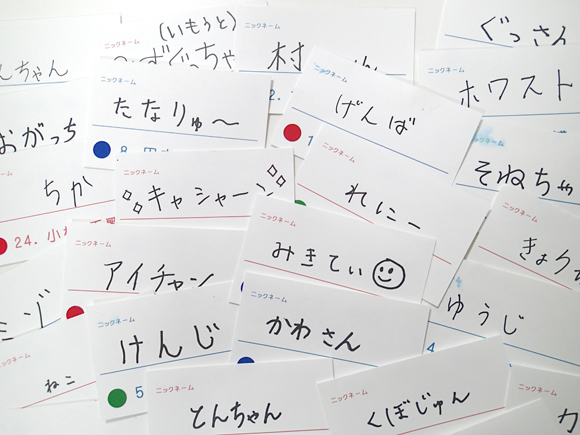 (いもうと)
ニックネーム
ぐっさん
ニックネーム
ホワスト
んちゃん
ニックネーム
たなりゅ〜
8.
ニックネーム
げんば
1
おがっち
ちか
24. 小
キャシャーン
ニックネーム
れいにー
そねちゃ
ニックネーム
みきてぃ
ニックネーム
アイチャン
ニックネーム
きょう
ゆうじ
4
ニックネーム
けんじ
5
ニックネーム
かわさん
ねこ
ニックネーム
とんちゃん
ニックネーム
くぼじゅん
ニックネーム